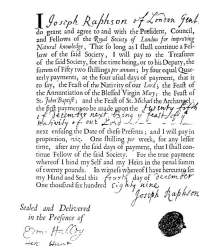 I Joseph Raphson of London Gent
do grant and agree to and with the President, Council,
and Fellows of the Royal Society of London for improving
Natural knowledge, That so long as I shall continue a Fel-
low of the said Society, I will pay to the Treasurer
of the said Society, for the time being, or to his Deputy, the
summ of Fifty two shillings per annum; by four equal Quar-
terly payments, at the four usual days of payment, that is
to say, the Feast of the Nativity of our Lord; the Feast of
the Annunciation of the Blessed Virgin Mary; the Feast of
St. John Baptist; and the Feast of St. Michael the Archangel:
the first payment to be made upon the twenty fifth
of december next, being ye feast of ye
Nativity of our Lord
next ensuing the Date of these Presents; and I will pay in
proportion, viz. One shilling per week, for any lesser
time, after any the said days of payment, that I shall con-
tinue Fellow of the said Society. For the true payment
whereof I bind my Self and my Heirs in the penal summ
of twenty pounds. In witness whereof I have hereunto set
my Hand and Seal this fourth day of December
One thousand six hundred eighty nine
Joseph Raphson
Sealed and Delivered
in the Presence of
Edm. Halley
Hunt